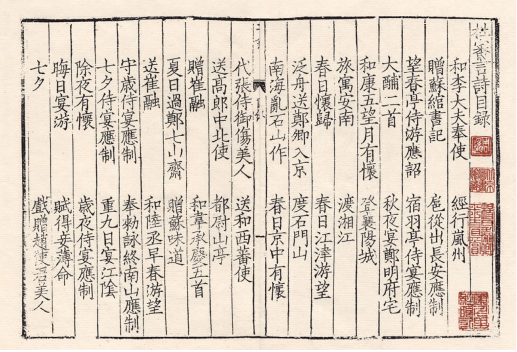 杜審言詩目錄
和李大夫奉使　經行嵐州
贈蘇綰書記　扈從出長安應制
望春亭侍游應詔　宿羽亭侍宴應制
大酺二首　秋夜宴鄭明府宅
和康五望月有懷　登襄陽城
旅寓安南　渡湘江
春日懷歸　春日江津游望
泛舟送鄭卿入京　度石門山
南海亂石山作　春日京中有懷
代張侍御傷美人　送和西蕃使
送高郎中北使　都尉山亭
贈崔融　和韋承慶五首
夏日過鄭七山齋　贈蘇味道
送崔融　和陸丞早春游望
守歲侍宴應制　奉勑詠終南山應制
七夕侍宴應制　重九日宴江陰
除夜有懷　歲夜侍宴應制
晦日宴游　賦得妾薄命
七夕　戲贈趙使君美人